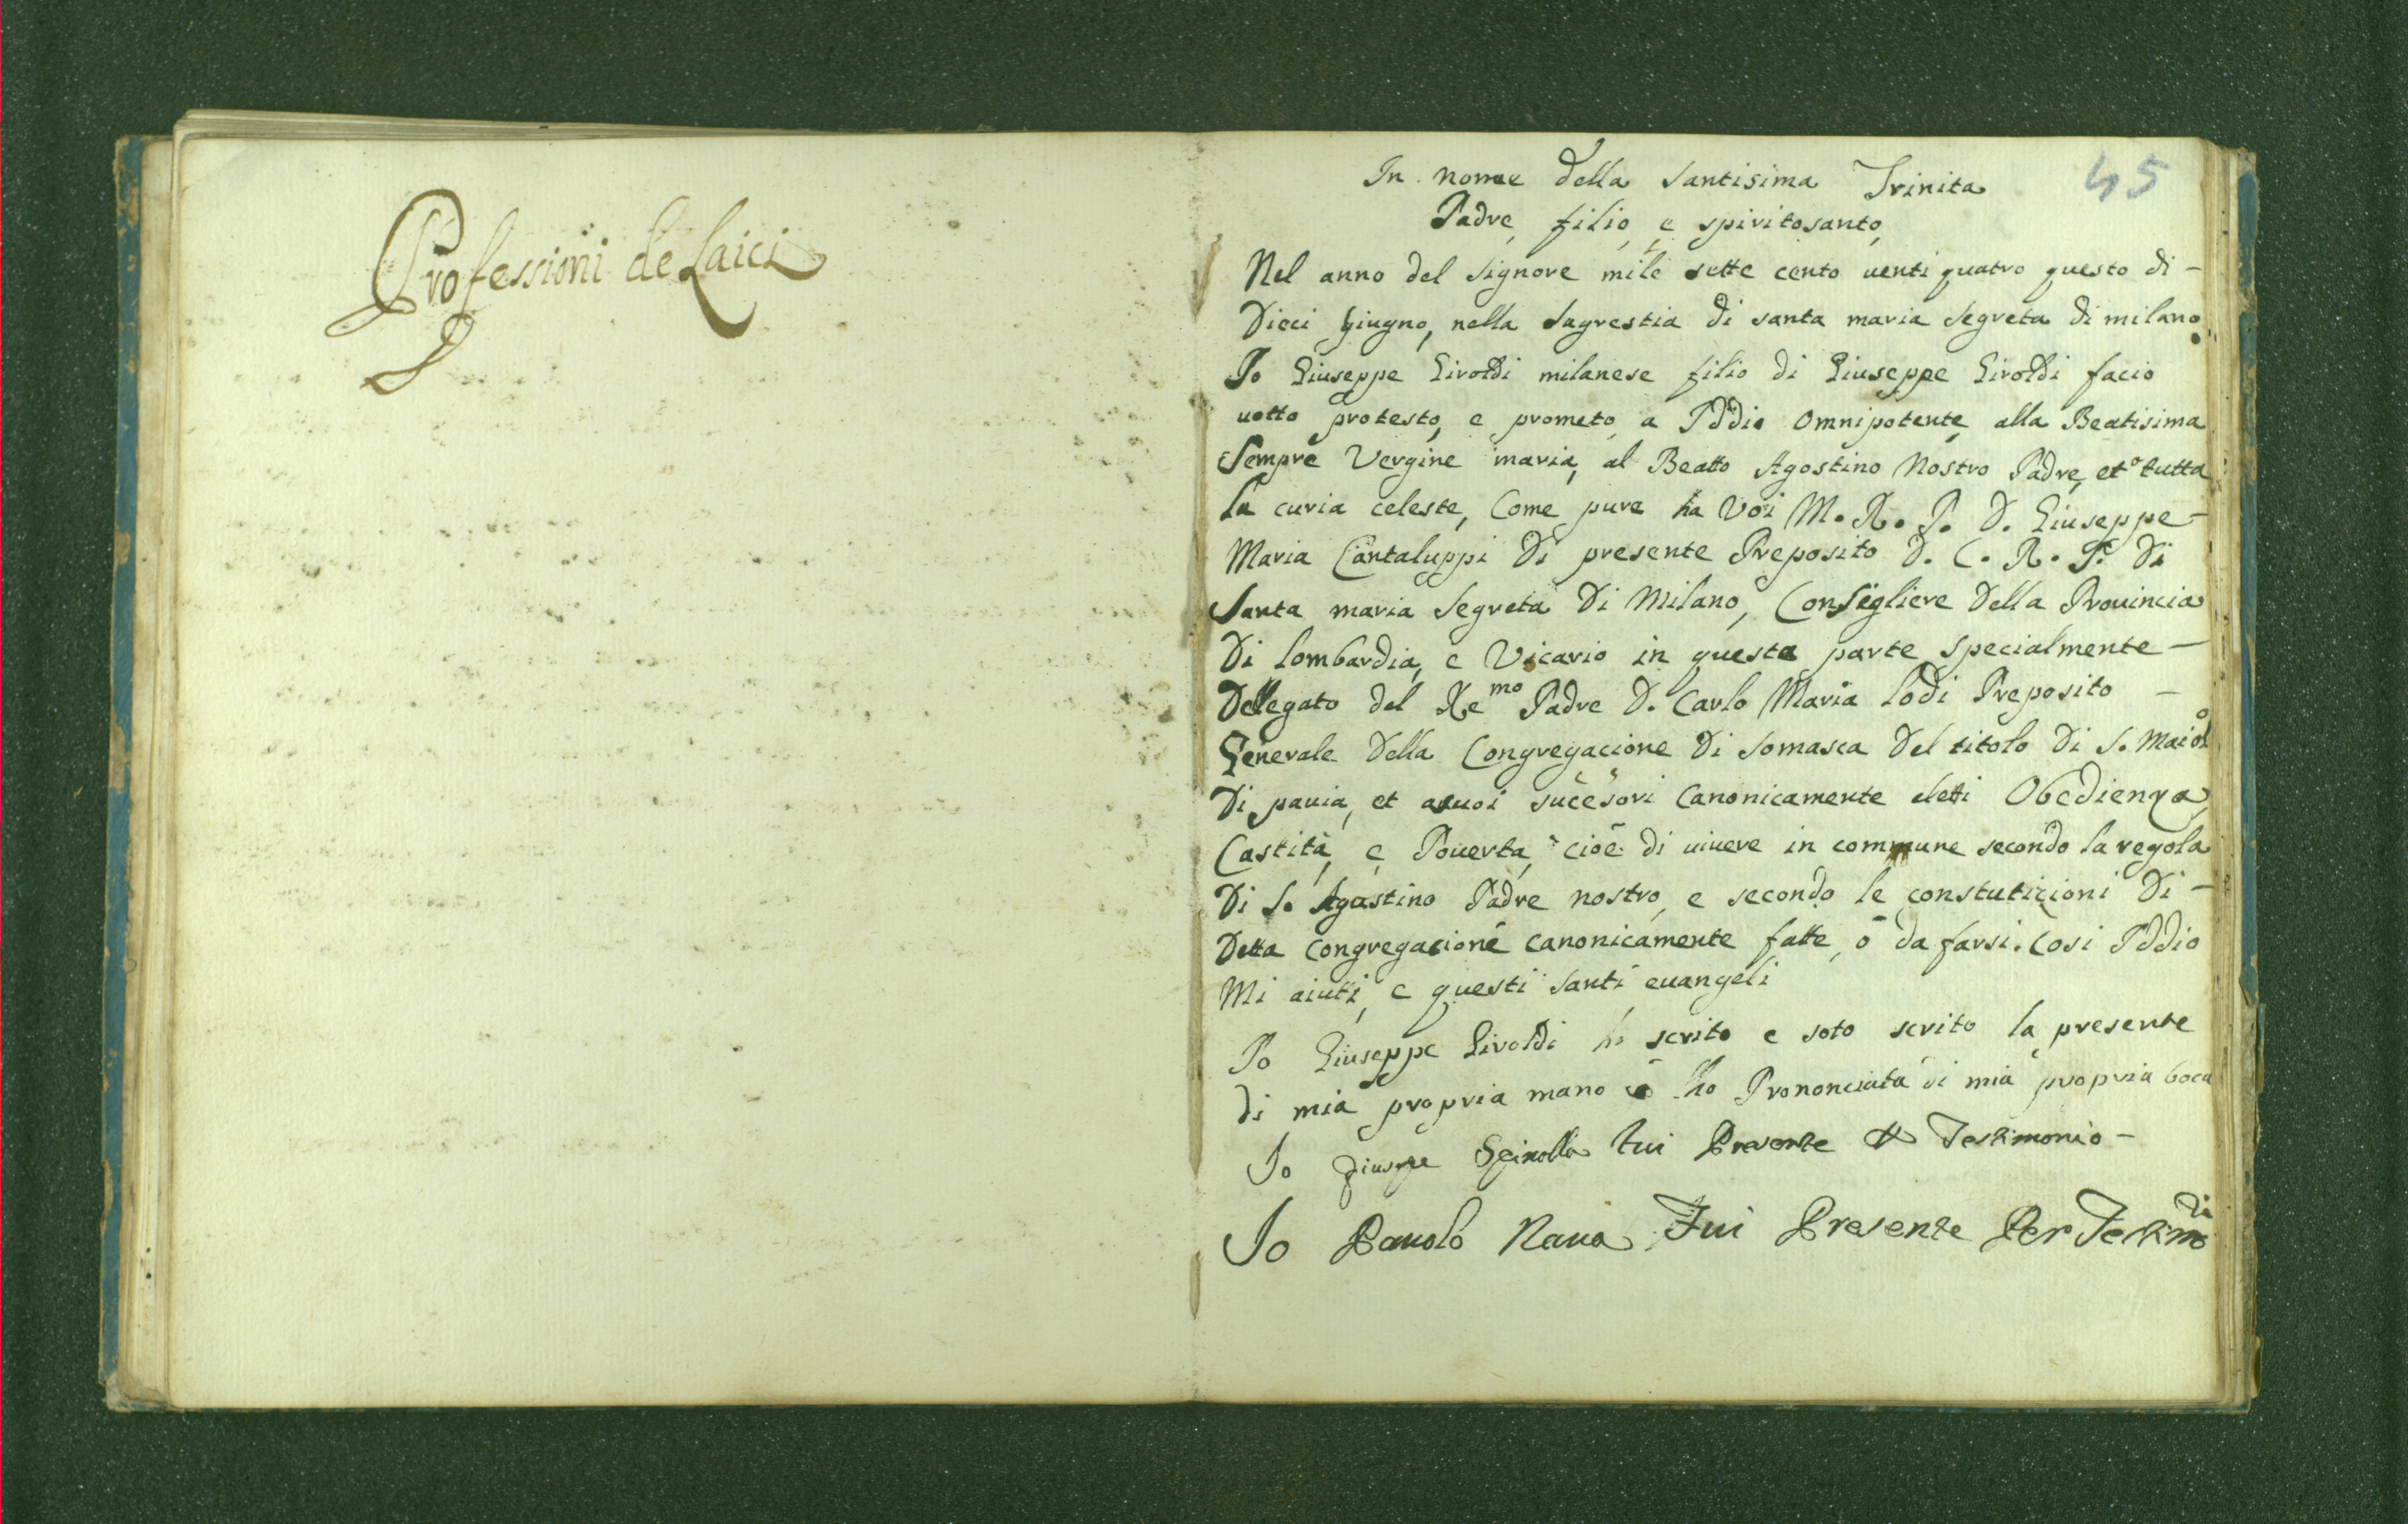 Professioni de Laici
45
In nome della santisima Trinita
Padre, filio, e spiritosanto,
Nel anno del Signore mile sette cento uenti quatro questo di -
Dieci giugno, nella sagrestia di santa maria segreta di milano
Io Giuseppe Giroldi milanese filio di Giuseppe Giroldi facio
uotto protesto, e prometo a Iddio omnipotente, alla Beatisima
Sempre Vergine maria, al Beatto Agostino Nostro Padre, et tutta
la curia celeste, Come pure ha Voi M. R. P. D. Giuseppe -
Maria Cantaluppi Di presente Preposito D. C. R. S. Di
Santa maria Segreta Di Milano, Consigliere Della Prouincia
Di lombardia, e Vicario in questa parte specialmente -
Dellegato del Re mo Padre D. Carlo Maria lodi Preposito -
Generale Della Congregacione Di somasca Del titolo Di S. Maiolo
Di pauia, et asuoi sucesori Canonicamente eletti Obedienza,
Castità, e Pouerta, cioè di uiuere in commune secondo la regola
Di S. Agostino Padre nostro, e secondo le constuticioni Di -
Detta congregacione canonicamente fatte, ò da farsi. Cosi Iddio
Mi aiuti, e questi santi euangeli
Io Giuseppe Giroldi ho scrito e soto scrito la presente
di mia propria mano e ho Prononciata di mia propria boca
Io Giusepe Spinolla fui Presente Testimonio -
Io Pauolo Naua Fui Presente Per Testimo